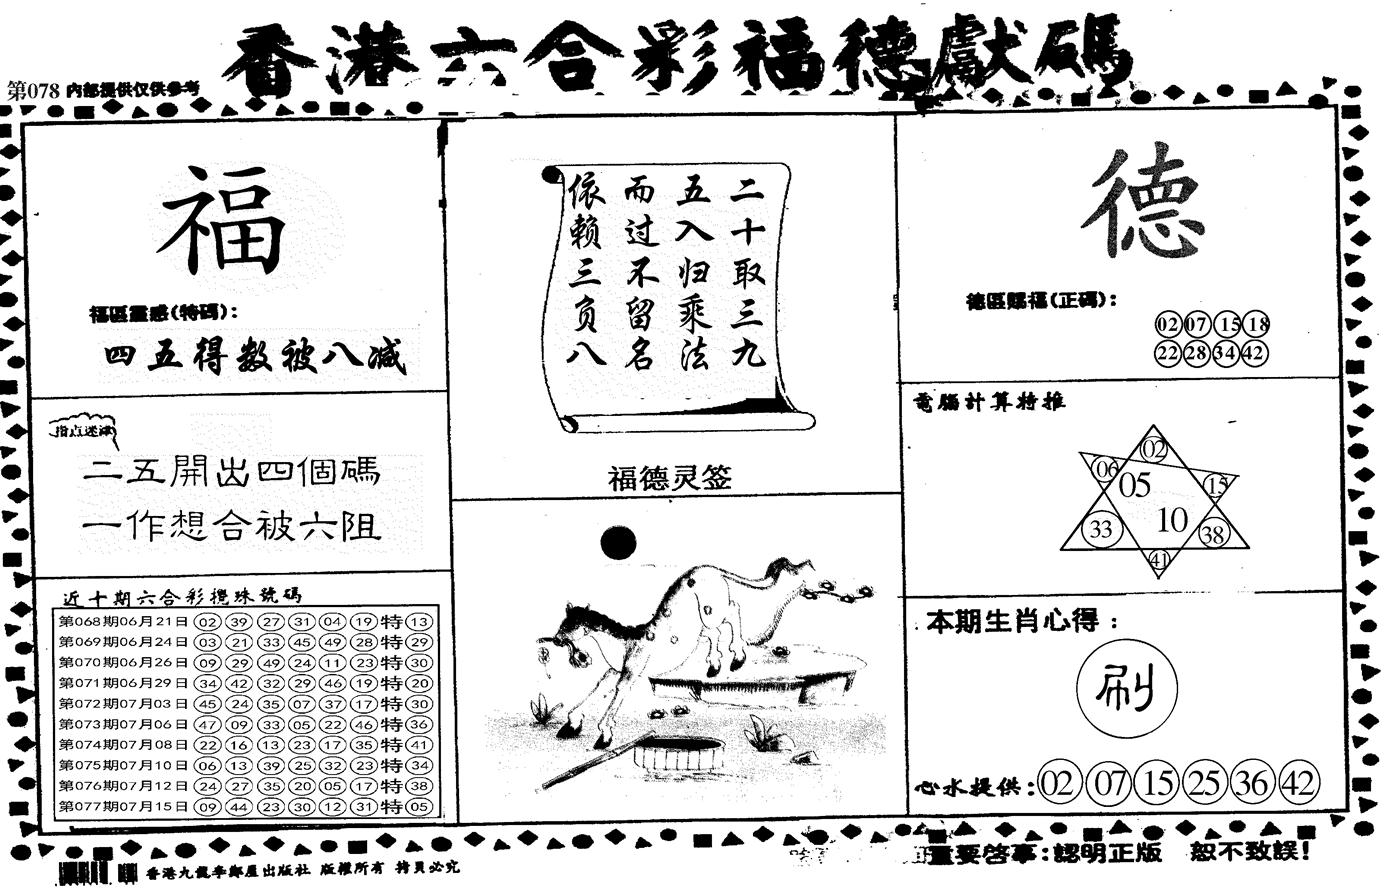 香港六合彩福德獻碼
第078 内部提供仅供參考
福
福區靈感(特碼):
四五得数被八减
指点迷津
二五開出四個碼
一作想合被六阻
近十期六合彩攪珠號碼
第068期06月21日 02 39 27 31 04 19 特 13
第069期06月24日 03 21 33 45 49 28 特 29
第070期06月26日 09 29 49 24 11 23 特 30
第071期06月29日 34 42 32 29 46 19 特 20
第072期07月03日 45 24 35 07 37 17 特 30
第073期07月06日 47 09 33 05 22 46 特 36
第074期07月08日 22 16 13 23 17 35 特 41
第075期07月10日 06 13 39 25 32 23 特 34
第076期07月12日 24 27 35 20 05 17 特 38
第077期07月15日 09 44 23 30 12 31 特 05
二十取三九
五入归乘法
而过不留名
依赖三负八
福德灵签
德
德區賜福(正碼):
02 07 15 18
22 28 34 42
電腦計算特推
02
06 15
05
10
33 38
41
本期生肖心得:
刷
心水提供: 02 07 15 25 36 42
重要啓事:認明正版 恕不致誤!
版權所有 拷貝必究